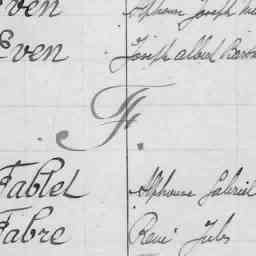 Even Alphonse Joseph
Even Joseph Albert
F.
Fablet Alphonse Gabriel
Fabre René Jules